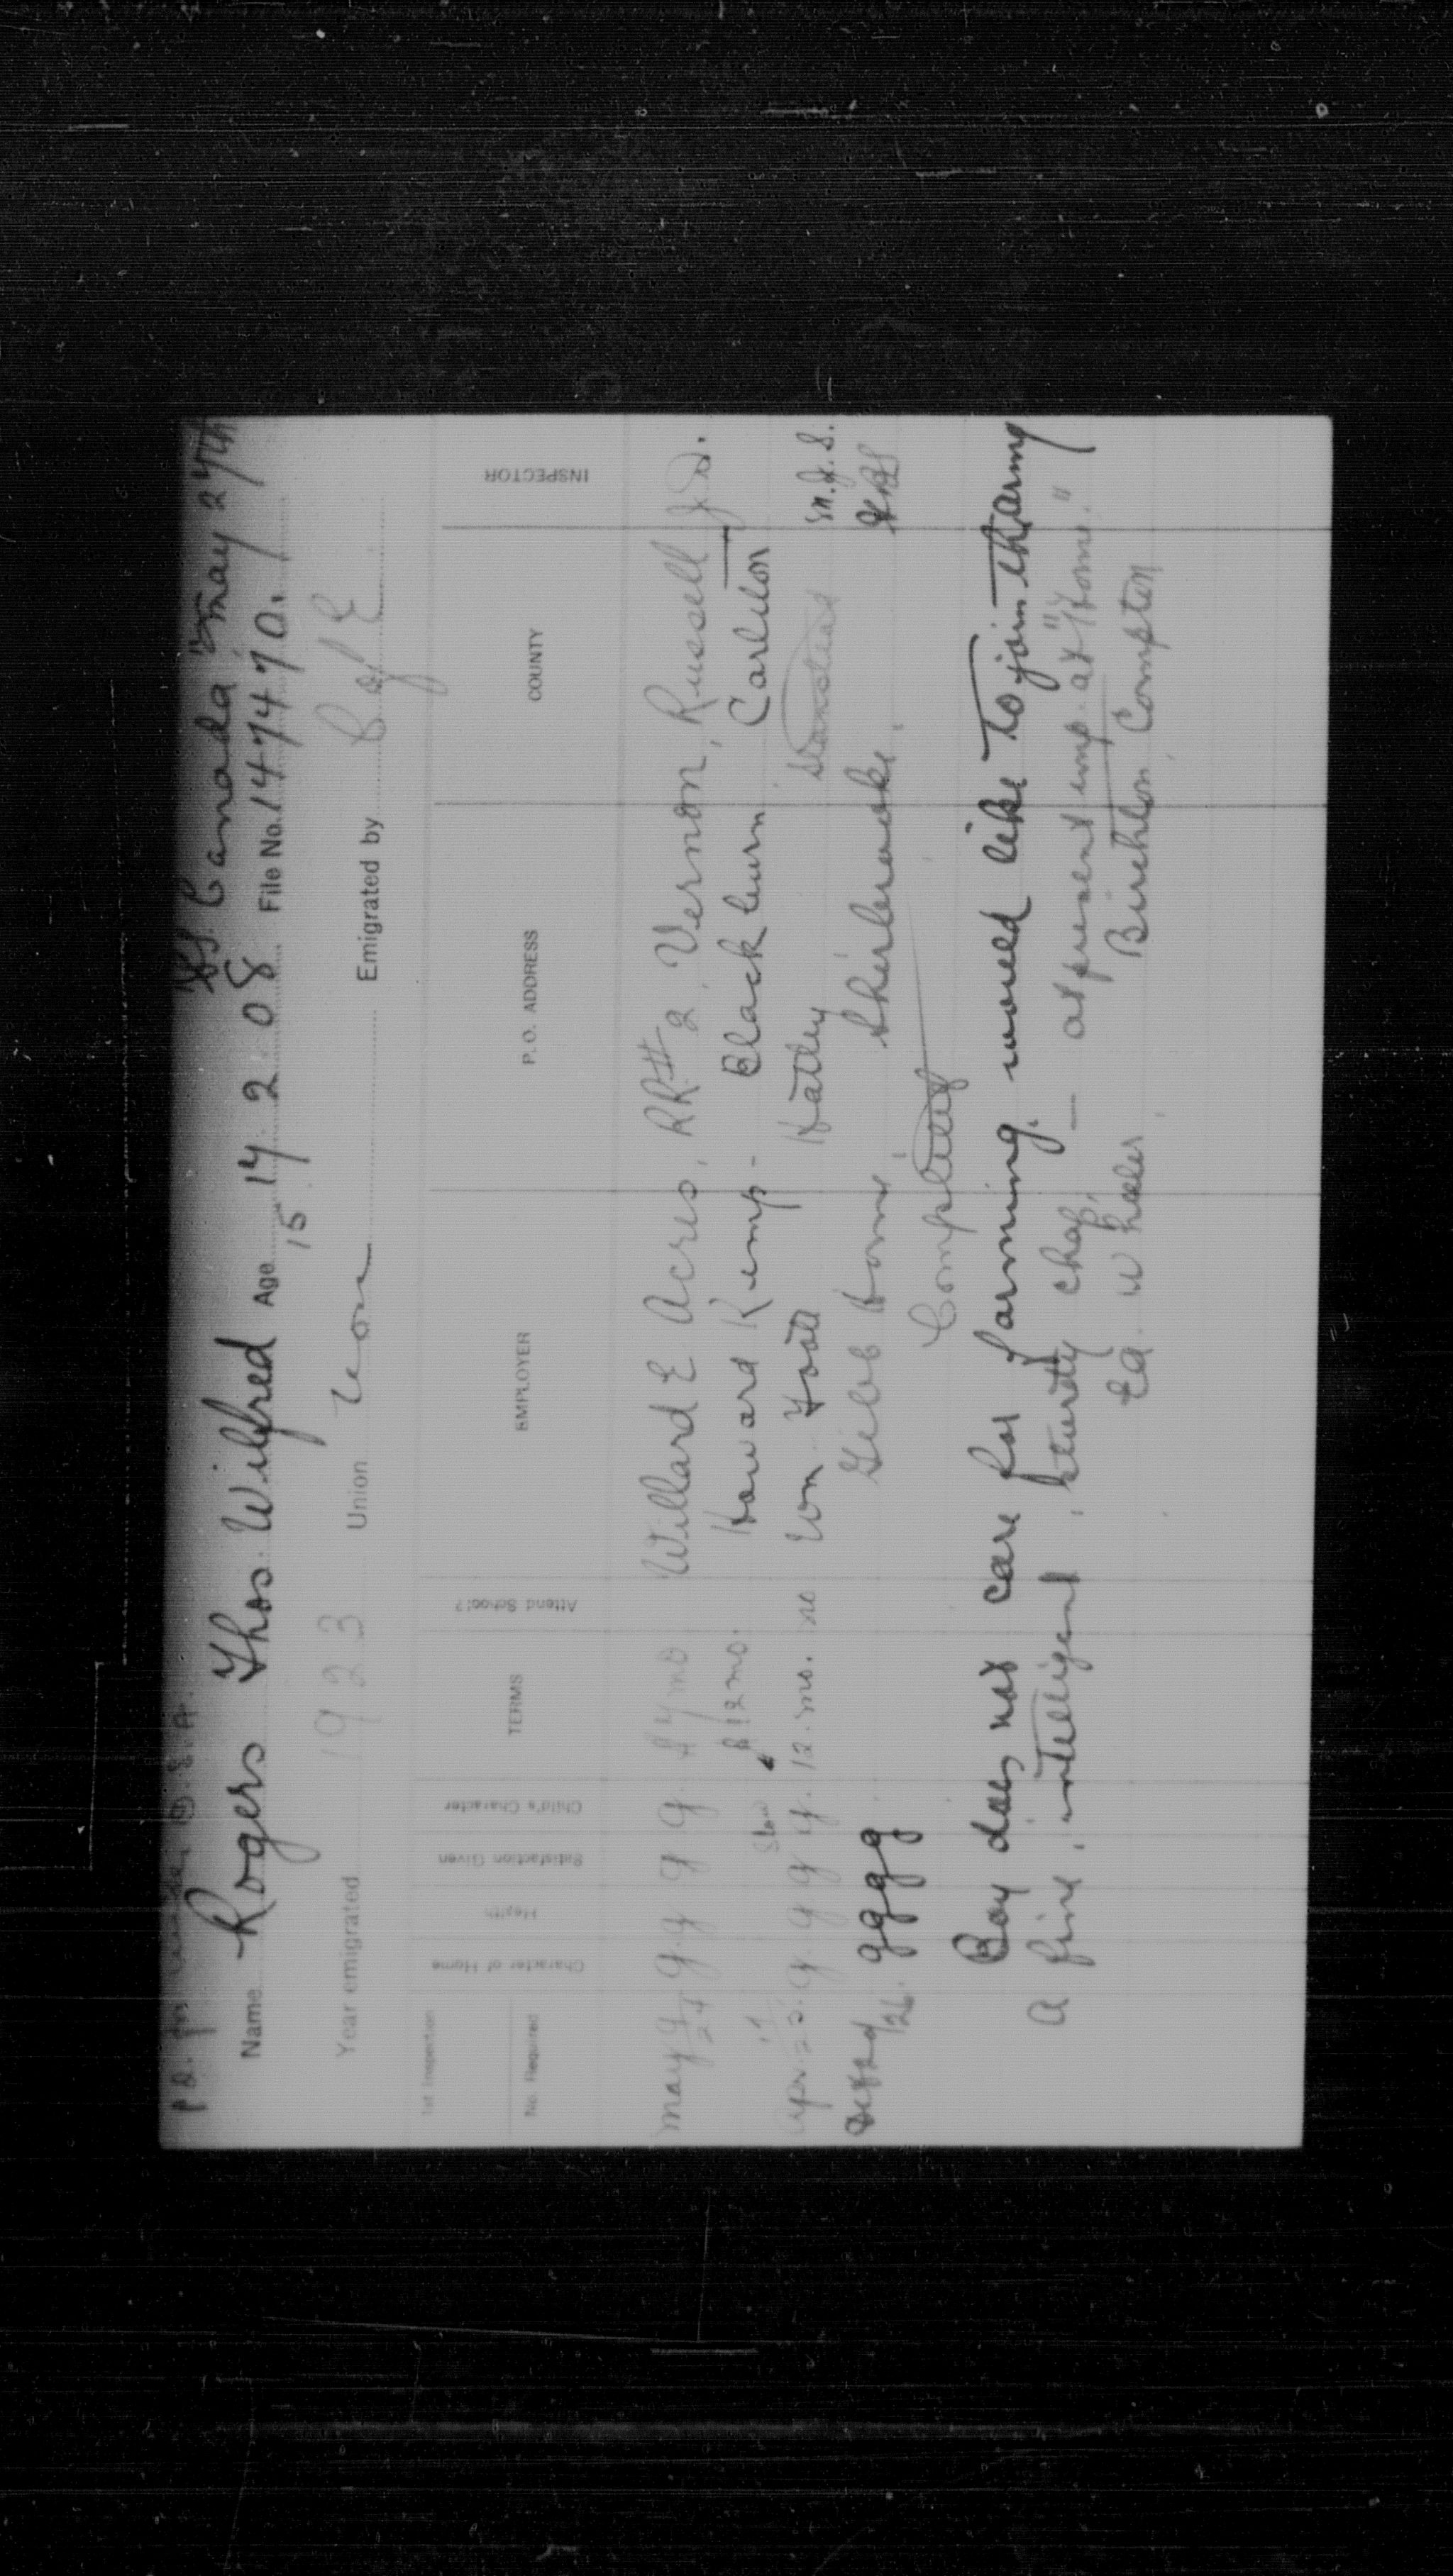 SS. Canada, May 27th
Name Rogers Thos. Wilfred Age 14. 2. 08 File No. 147470.
15
Year emigrated 1923 Union None Emigrated by
1st Inspection
No. Required Character of Home Health Satisfaction Given Child's Character TERMS Attend School? EMPLOYER P. O. ADDRESS COUNTY INSPECTOR
May 9 24 g g g g mo Willard E Acres, RR# 2, Vernon, Russell
$12 mo. Howard Kemp - Blackburn Carleton
Slow
Apr. g g g g. 12. mo. no Wm Hatley Stanstead M.J.S.
26. g g g g Gibb Home, Sherbrooke.
Completed
Boy does not care for farming. would like to join the army
A fine, intelligent, sturdy chap, — at present emp. at "Home."
Ed. Wheeler Birchton Compton